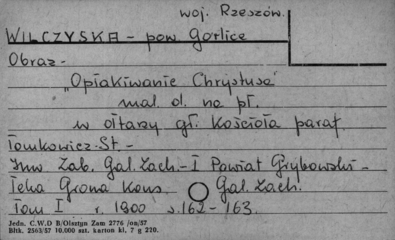 woj. Rzeszów.
WILCZYSKA - pow Gorlice
Obraz -
"Opłakiwanie Chrystusa"
mal ol. na pł.
w ołtarzu gł. Kościoła paraf
Tomkowicz St -
Inw Zab. Gal. Zach. - I Powiat Grybowski -
Teka Grona Kons. Gal. Zach.
Tom I r. 1900 s. 162 - 163.
Jedn. C.W.D B/Olsztyn Zam 2776 /on/57
Bltk. 2563/57 10.000 szt. karton kl, 7 g 220.